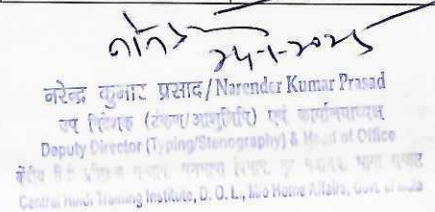 24-1-2025
नरेन्द्र कुमार प्रसाद/Narender Kumar Prasad
उप निदेशक (टंकण/आशुलिपि) एवं कार्यालयाध्यक्ष
Deputy Director (Typing/Stenography) & Head of Office
केंद्रीय हिंदी प्रशिक्षण संस्थान, राजभाषा विभाग, गृह मंत्रालय, भारत सरकार
Central Hindi Training Institute, D. O. L., M/o Home Affairs, Govt. of India